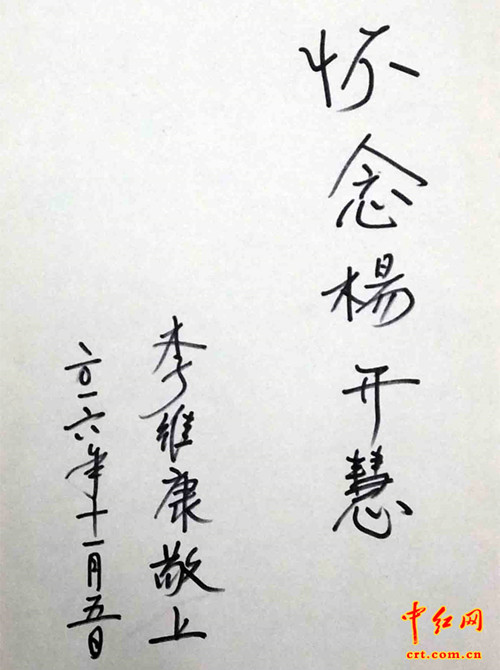 怀念楊开慧
李维康敬上
二〇一六年十一月五日
中红网
crt.com.cn